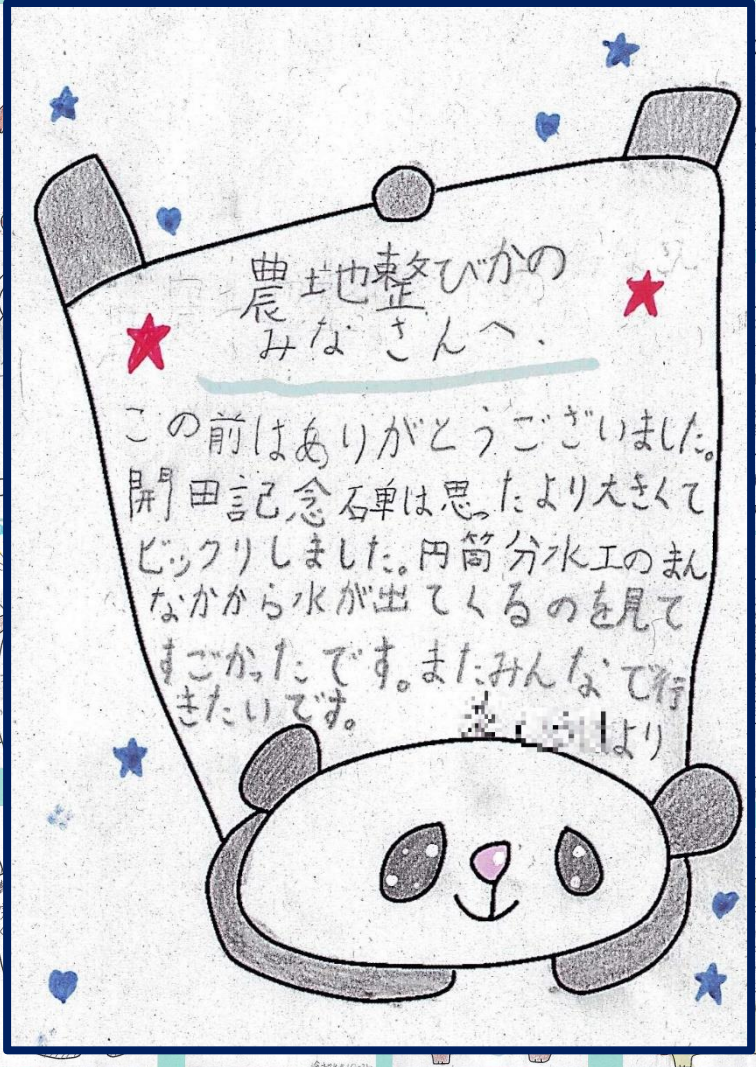 農地整びかの
みなさんへ.
この前はありがとうございました。
開田記念碑は思ったより大きくて
ビックリしました。円筒分水工のまん
なかから水が出てくるのを見て
すごかったです。またみんなで行
きたいです。
より